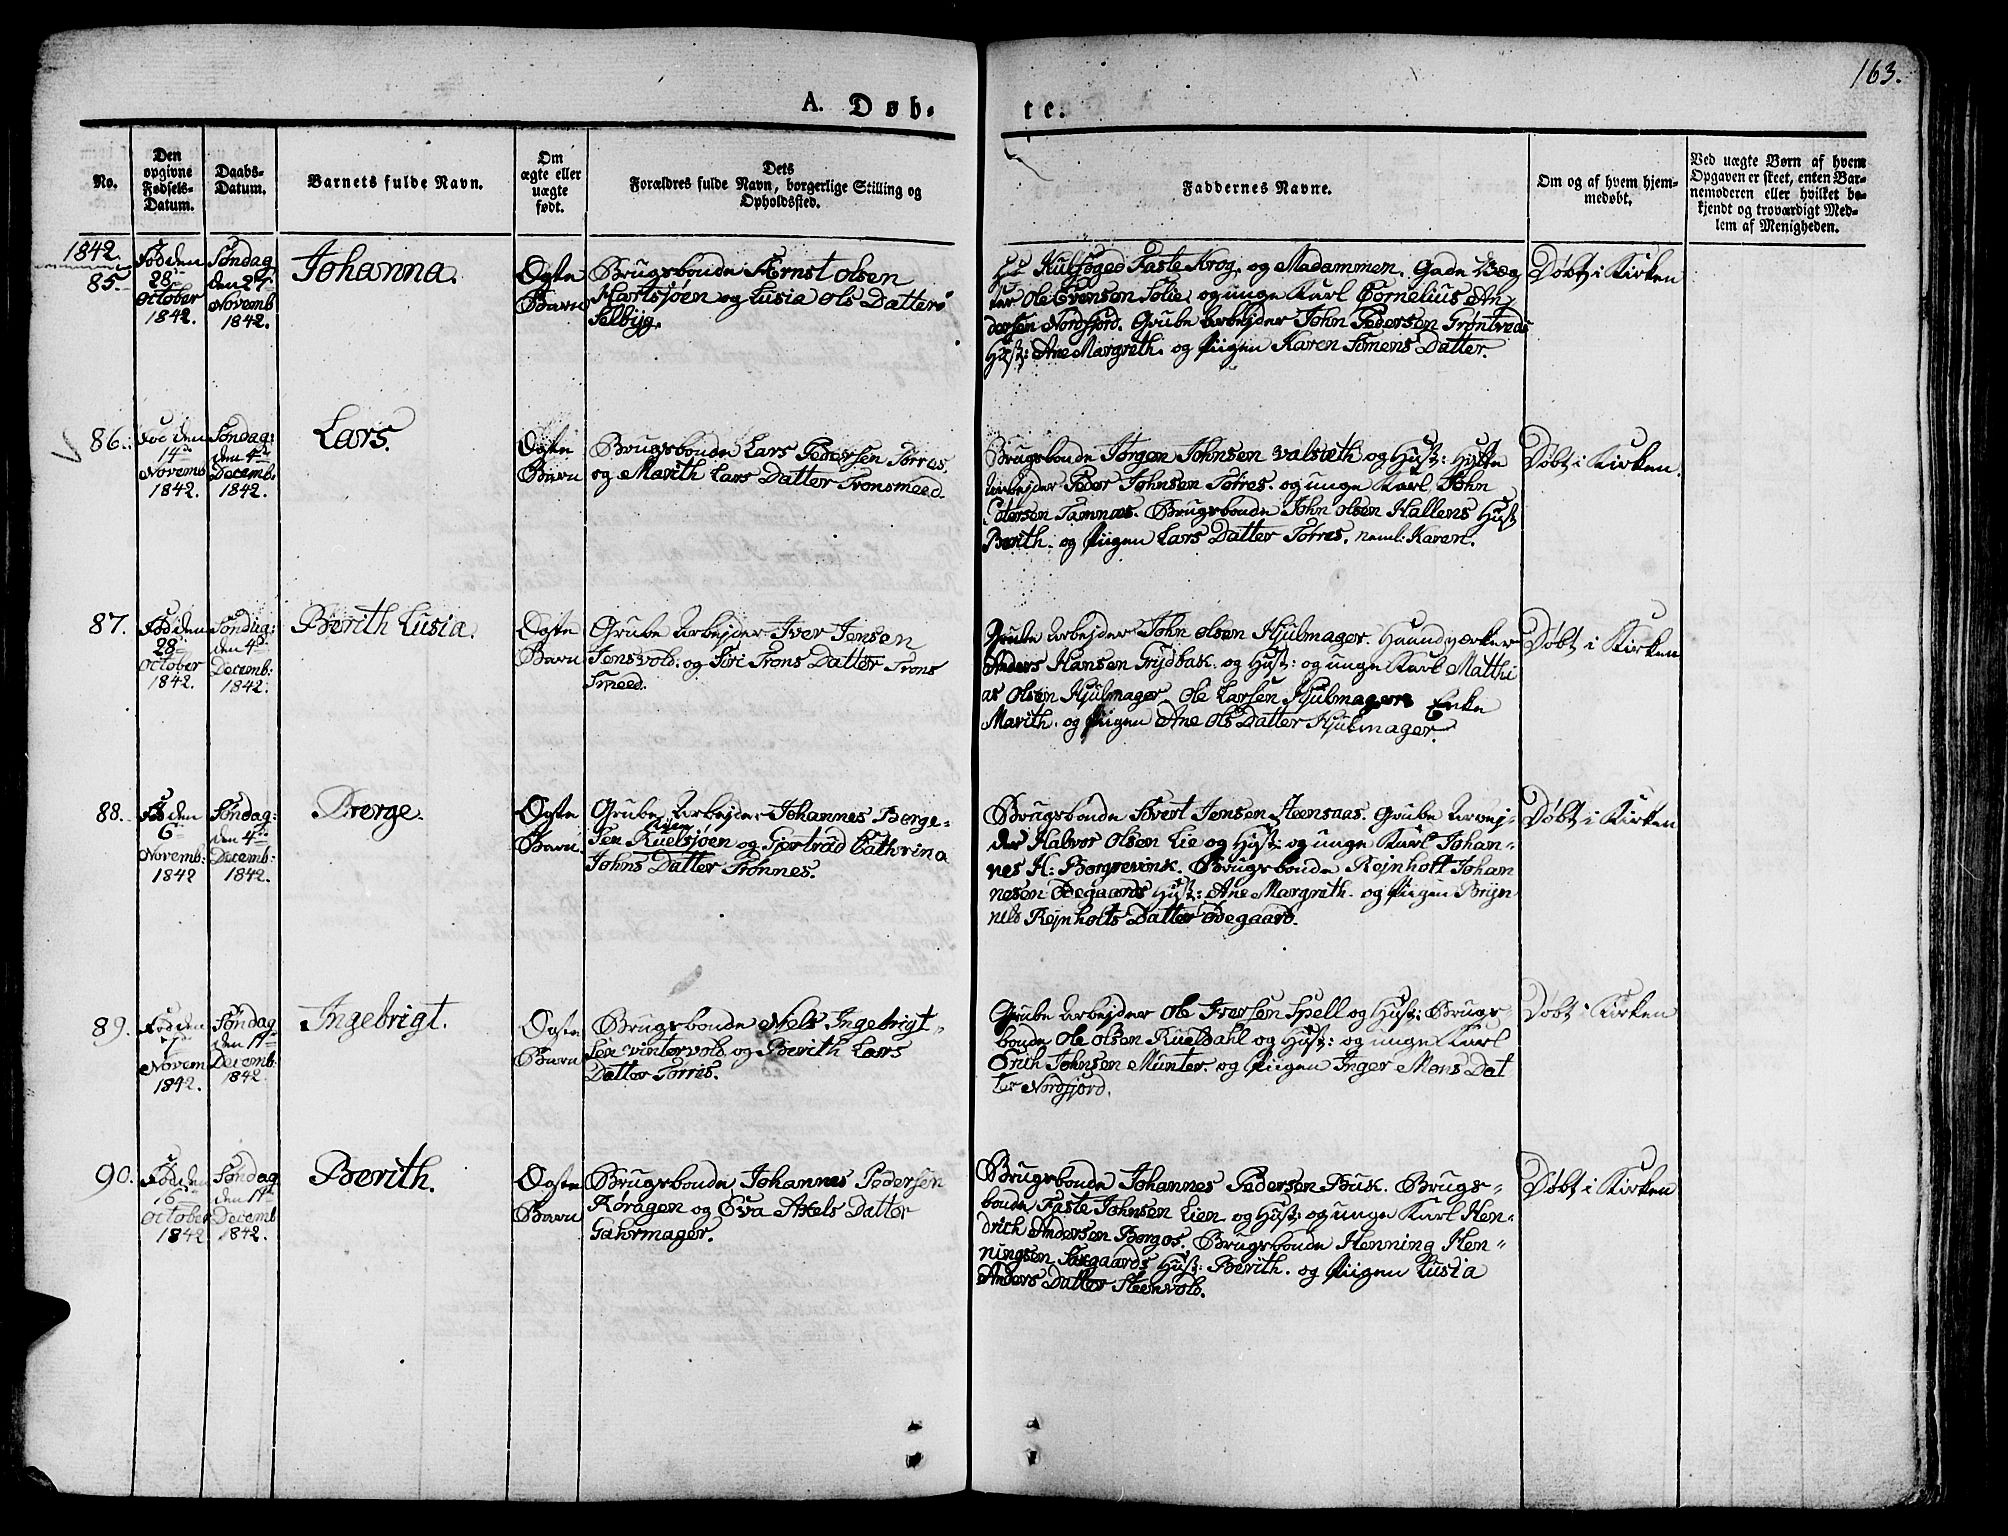 163.
A. Døb-
te.
No.
Den
opgivne
Fødsels-
Datum.
Daabs-
Datum.
Barnets fulde Navn.
Om
ægte eller
uægte
født.
Dets
Forældres fulde Navn, borgerlige Stilling og
Opholdssted.
Faddernes Navne.
Om og af hvem hjem-
medøbt.
Ved uægte Børn af hvem
Opgaven er skeet, enten Bar-
nemoderen eller hvilket be-
kjendt og troværdigt Med-
lem af Menigheden.
1842.
85.
Fød den
28
October
1842.
Søndag
den 27
Novemb
1842.
Johanna.
Ægte
Barn
Brugsbonde Ernst Olsen
Hartsjøen og Lusia Ols Datter
Selbyg.
Kulfoged Faste Krog. og Madammen. Gade Væg
ter Ole Evensen Solie, og unge Karl Cornelius An
dersen Nordfjord. Grube Arbejder John Pedersen Grøntveds
Hust: Ane Margreth. og Piigen Karen Simens Datter.
Døbt i Kirken
86.
Fød den
14de
Novemb
1842.
Søndag:
den 4de
Decemb:
1842.
Lars.
Ægte
Barn
Brugsbonde Lars Pedersen Torres
og Marith Lars Datter Tronsmeed.
Brugsbonde Jørgen Johnsen Valsæth og Hust: Hytte
Arbejder Peder Johnsen Torres. og unge Karl John
Petersen Tamnæs. Brugsbonde John Olsen Hallens Hust
Berith. og Piigen Lars Datter Torres. neml: Karen.
Døbt i Kirken.
87.
Fød den
28
October
1842.
Søndag:
den 4de
Decemb:
1842.
Berith Lusia.
Ægte
Barn
Grube Arbejder Iver Jensen
Jensvold. og Siri Trons Datter Trons
Smeed.
Grube Arbejder John Olsen Hjulmager. Haandværker
Anders Hansen Grydbak. og Hust: og unge Karl Matthi
as Olsen Hjulmager, Ole Larsen Hjulmagers Enke
Marith. og Piigen Ane Ols Datter Hjulmager.
Døbt i Kirken
88.
Fød den
6
Novemb:
1842
Søndag:
den 4de
Decemb:
1842.
Berge.
Ægte
Barn.
Grube Arbejder Johannes Berge-
sen Ruelsjøen og Gjertrud Cathrina
Johns Datter Trønnes.
Brugsbonde Sivert Jensen Steensaas. Grube Arbej
der Halvor Olsen Lie og Hust: og unge Karl Johan-
nes H: Borgrevink. Brugsbonde Rejnholt Johan
nesen Ødegaards Hust: Ane Margreth. og Piigen Bryn
nels Rejnholts Datter Ødegaard.
Døbt i Kirken
89.
Fød den
Novem
1842.
Søndag
den 11te
Decemb:
1842.
Ingebrigt.
Ægte
Barn
Brugsbonde Niels Ingebrigt-
sen Vintervold og Berith Lars
Datter Torris.
Grube Arbejder Ole Iversen Spell og Hust: Brugs
bonde Ole Olsen Rueldahl og Hust: og unge Karl
Erich Johnsen Munter. og Piigen Inger Mons Dat
ter Nordfjord.
Døbt i Kirken
90.
Fød den
16
October
1842
Søndag
den 11te
Decemb
1842.
Berith.
Ægte
Barn
Brugsbonde Johannes Pedersen
Røragen og Eva Axels Datter
Gahrmager.
Brugsbonde Johannes Pedersen Buk. Brugs-
bonde Faste Johnsen Lien og Hust: og unge Karl Hen-
drich Andersen Borgos. Brugsbonde Henning Hen-
ningsen Sxgaards Hust: Berith. og Piigen Lusia
Anders Datter Steenvold.
Døbt i Kirken